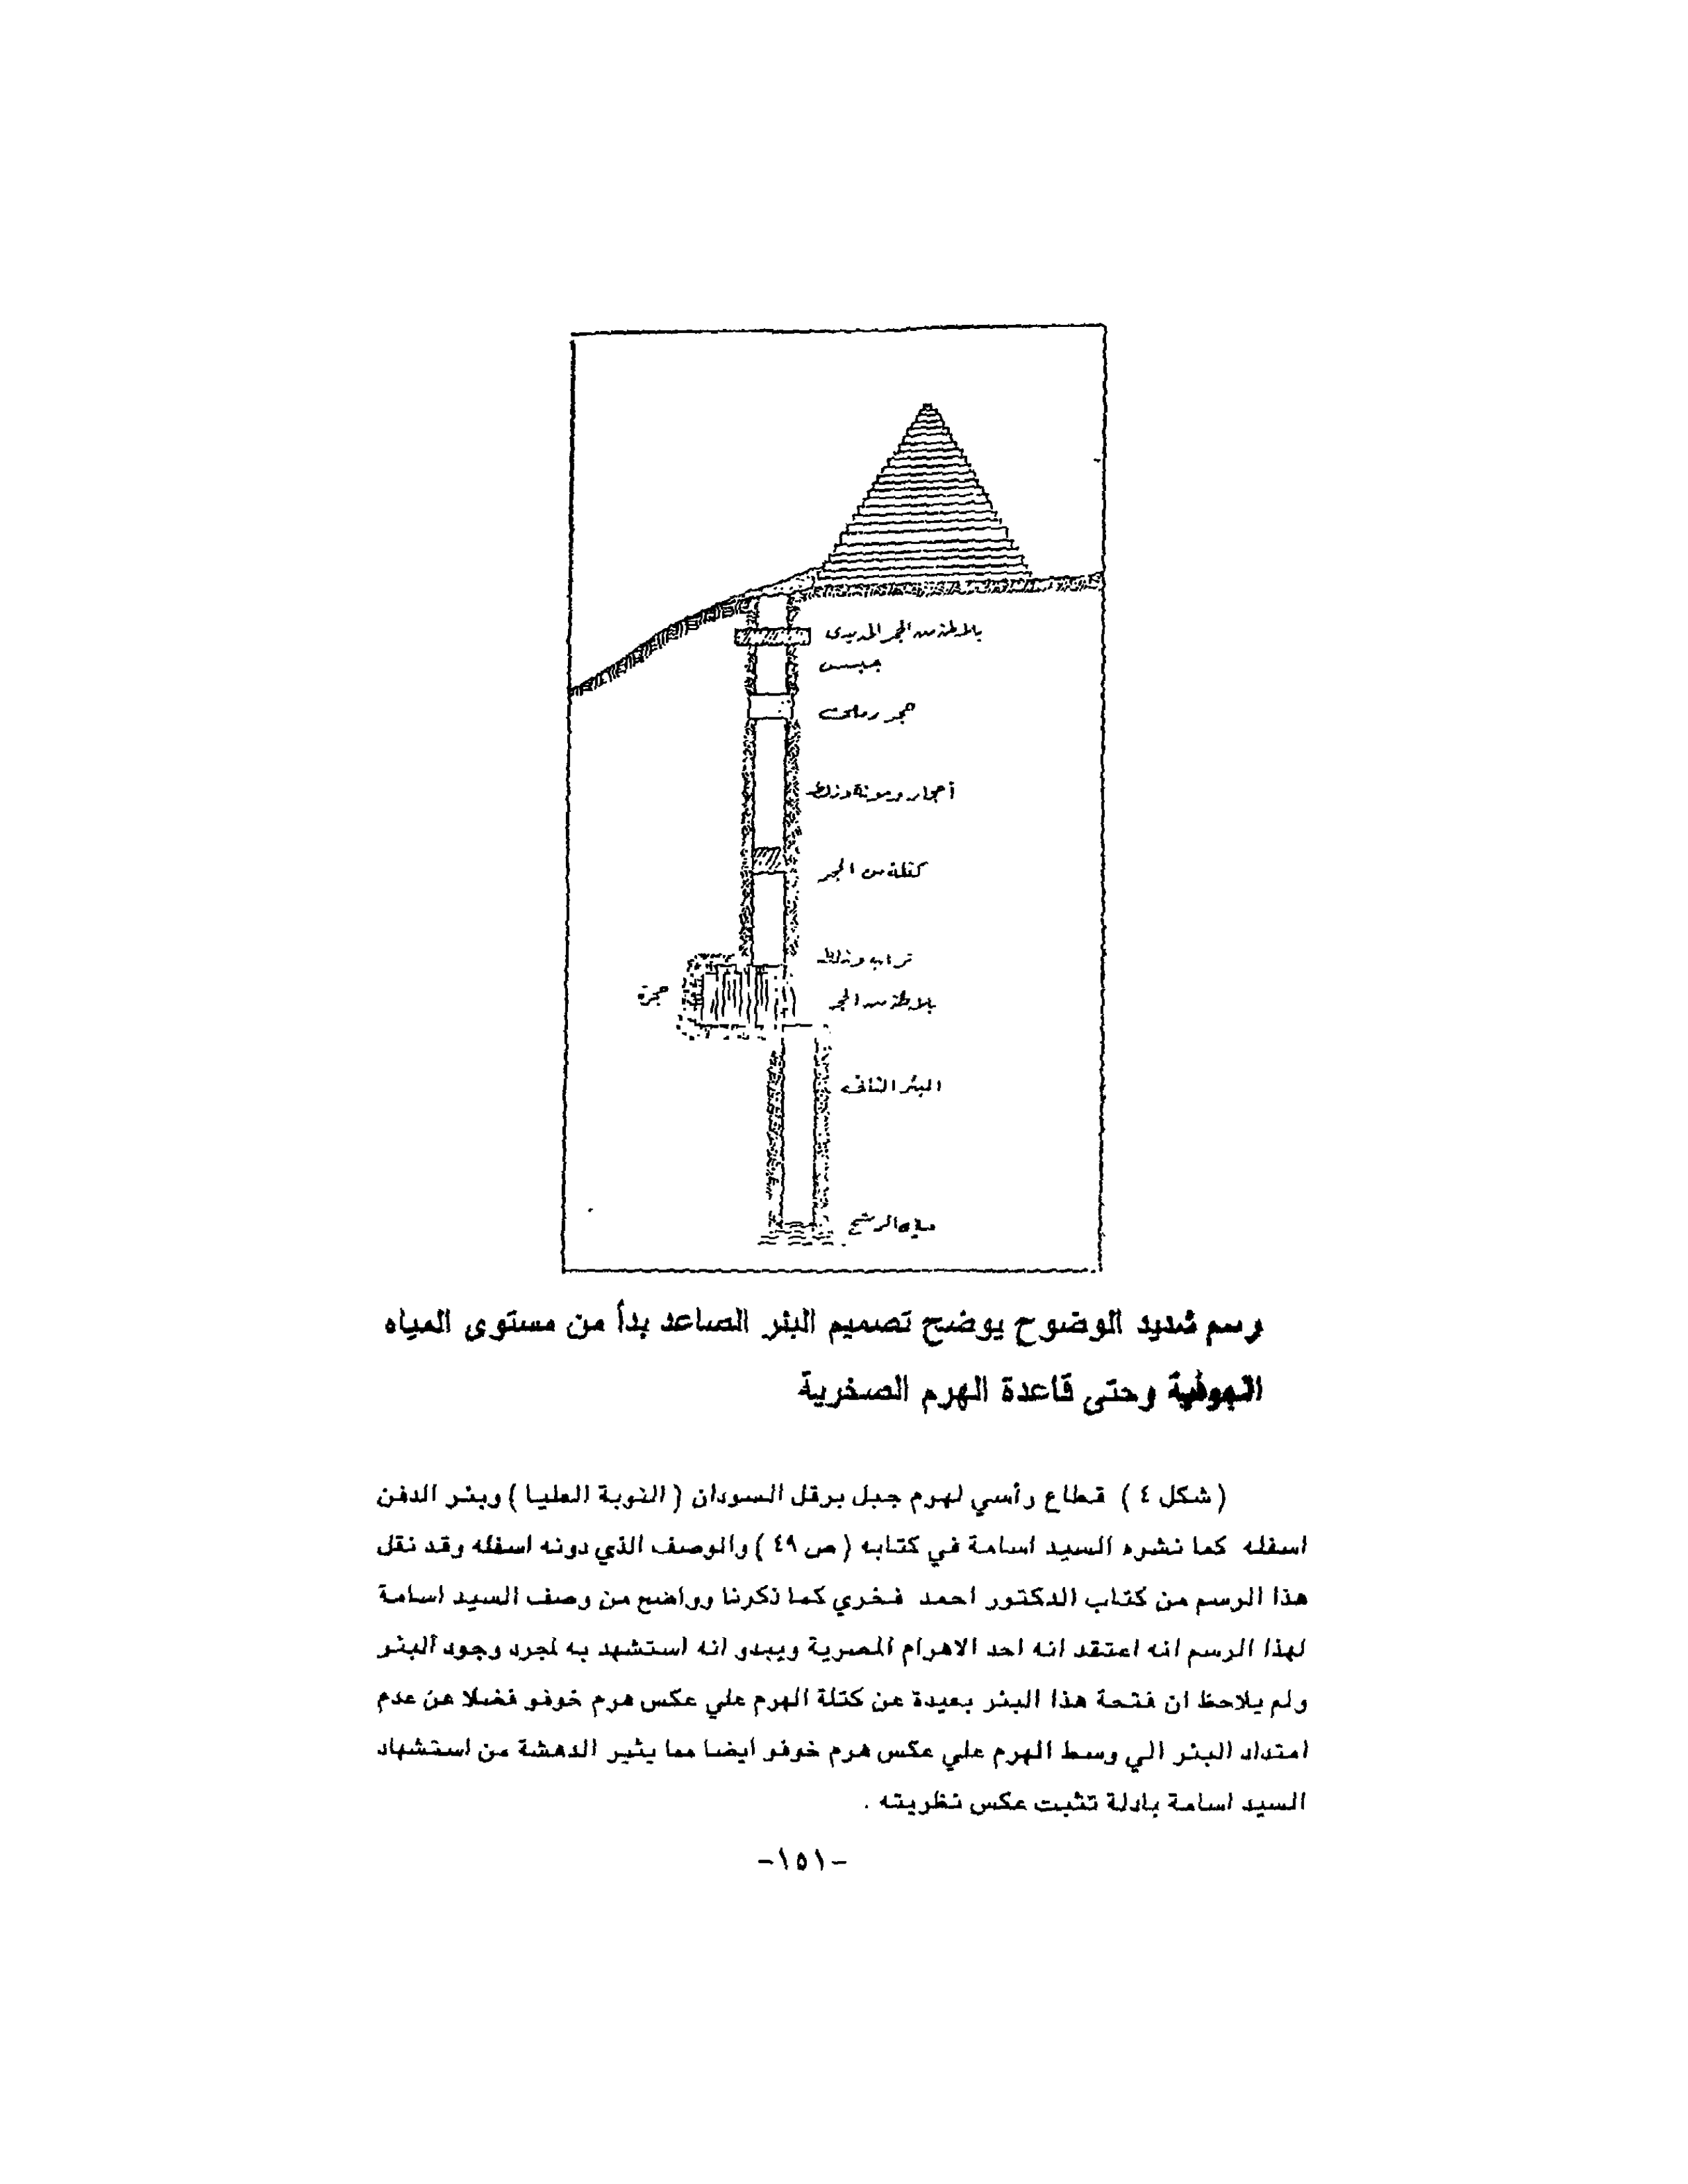 بلاطة من الحجر الحديدى
جبس
حجر رملى
أحجار ومونة وزلط
كتلة من الحجر
تراب وزلط
حجرة
بلاطة من الحجر
البئر الثانى
مياه الرشح
رسم شديد الوضوح يوضح تصميم البئر الصاعد بدأ من مستوى المياه
الجوفية وحتى قاعدة الهرم الصخرية
( شكل ٤ ) قطاع رأسي لهرم جبل برقل السودان ( النوبة العليا ) وبئر الدفن
اسفله كما نشره السيد اسامة في كتابه ( ص ٤٩ ) والوصف الذي دونه اسفله وقد نقل
هذا الرسم من كتاب الدكتور احمد فخري كما ذكرنا وواضح من وصف السيد اسامة
لهذا الرسم انه اعتقد انه احد الاهرام المصرية ويبدو انه استشهد به لمجرد وجود البئر
ولم يلاحظ ان فتحة هذا البئر بعيدة عن كتلة الهرم علي عكس هرم خوفو فضلا عن عدم
امتداد البئر الي وسط الهرم علي عكس هرم خوفو ايضا مما يثير الدهشة من استشهاد
السيد اسامة بادلة تثبت عكس نظريته .
-١٥١-